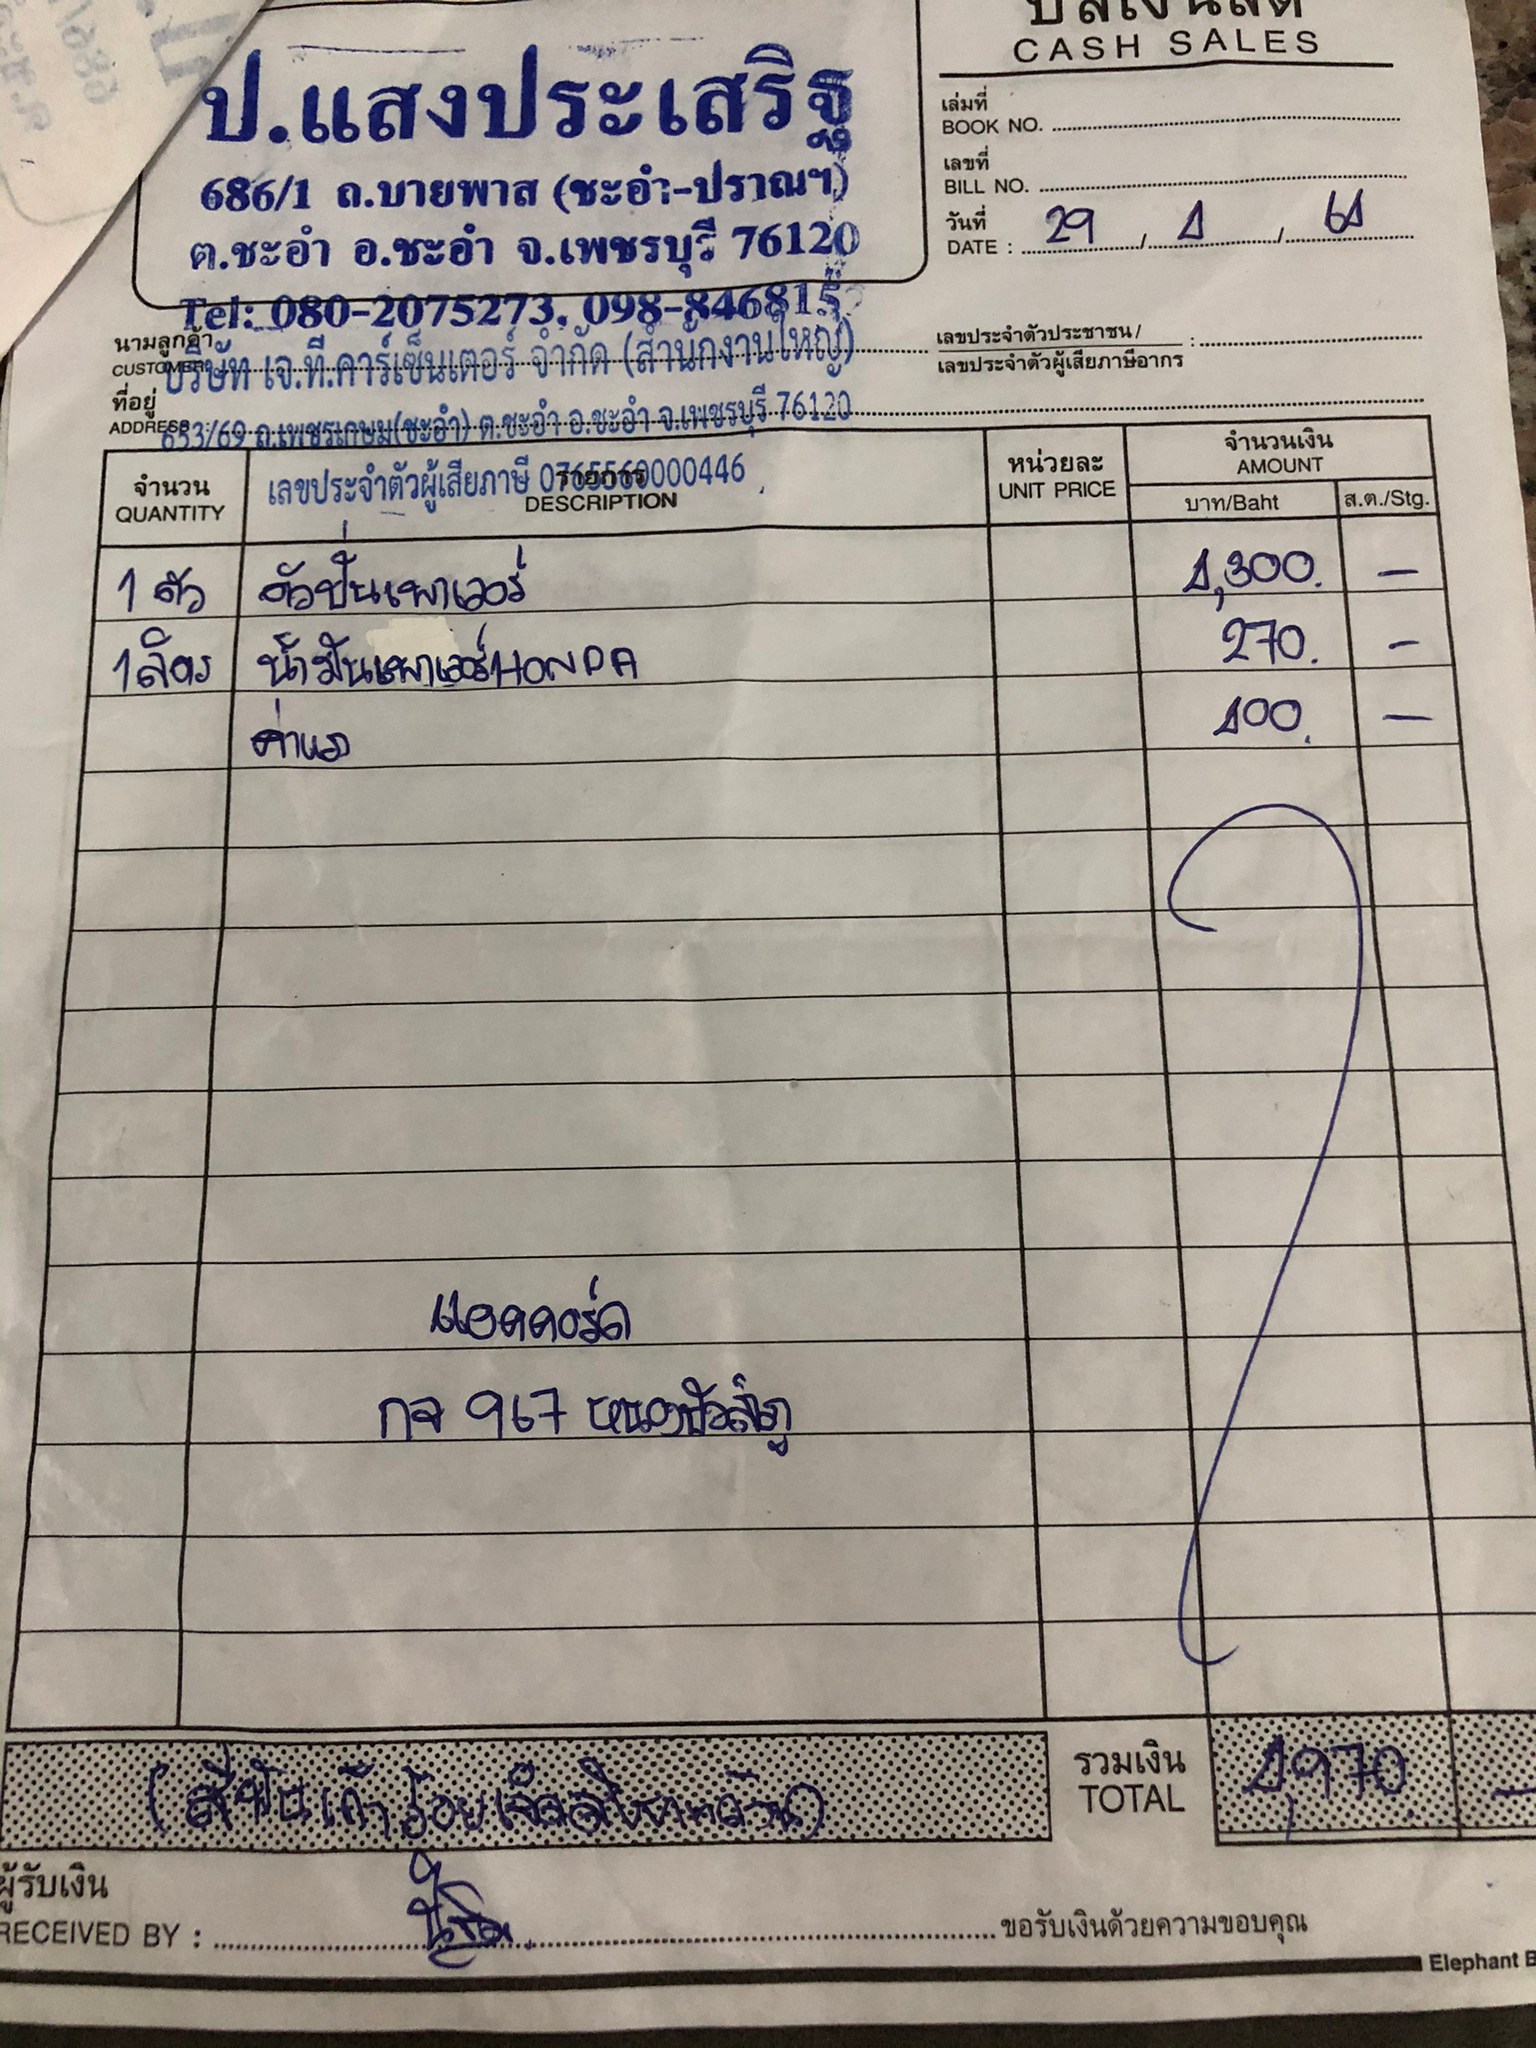 บิลเงินสด
CASH SALES
ป.แสงประเสริฐ
686/1 ถ.บายพาส (ชะอำ-ปราณฯ)
ต.ชะอำ อ.ชะอำ จ.เพชรบุรี 76120
Tel: 080-2075273, 098-846815
เล่มที่
BOOK NO.
เลขที่
BILL NO.
วันที่
DATE : 29 / 1 / 61
นามลูกค้า
CUSTOMER บริษัท เจ.ที.คาร์เซ็นเตอร์ จำกัด (สำนักงานใหญ่)
เลขประจำตัวประชาชน /
เลขประจำตัวผู้เสียภาษีอากร :
ที่อยู่
ADDRESS : 653/69 ถ.เพชรเกษม(ชะอำ) ต.ชะอำ อ.ชะอำ จ.เพชรบุรี 76120
เลขประจำตัวผู้เสียภาษี 0765560000446
จำนวน รายการ หน่วยละ จำนวนเงิน
QUANTITY DESCRIPTION UNIT PRICE AMOUNT
บาท/Baht ส.ต./Stg.
1 ตัว ตัวปั๊มเพาเวอร์ 1,300. -
1 ลิตร น้ำมันเพาเวอร์ HONDA 270. -
ค่าแรง 400. -
แอคคอร์ด
กจ 967
รวมเงิน
TOTAL 1,970. -
ผู้รับเงิน
RECEIVED BY : ขอรับเงินด้วยความขอบคุณ
Elephant B